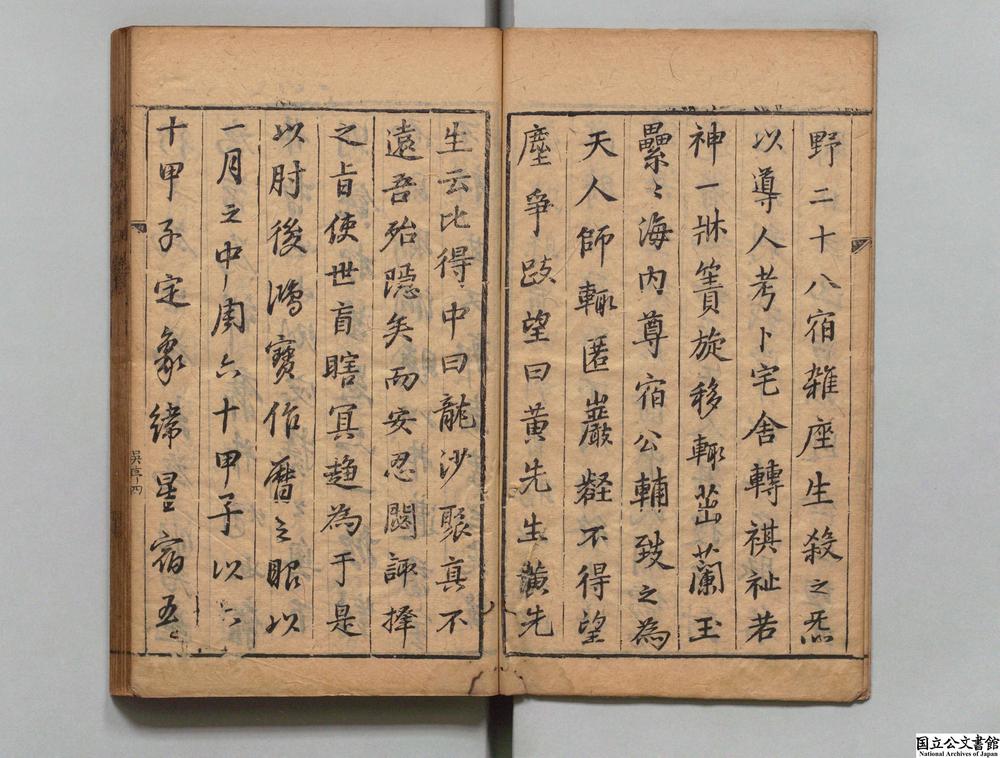 野二十八宿雑座生殺之炁
以導人考卜宅舍轉祺祉若
神一牀簀旋移輙茁蘭玉
纍〻海内尊宿公輔致之為
天人師輙匿巖壑不得望
塵爭跂望曰黄先生黄先
生云比得中曰龍沙聚真不
遠吾殆隠矣而安忍閟諏擇
之旨使世盲瞎冥趨為于是
以肘後鴻寳作暦之眼以
一月之中周六十甲子以六
十甲子定象緯星宿五〻
四
国立公文書館
National Archives of Japan